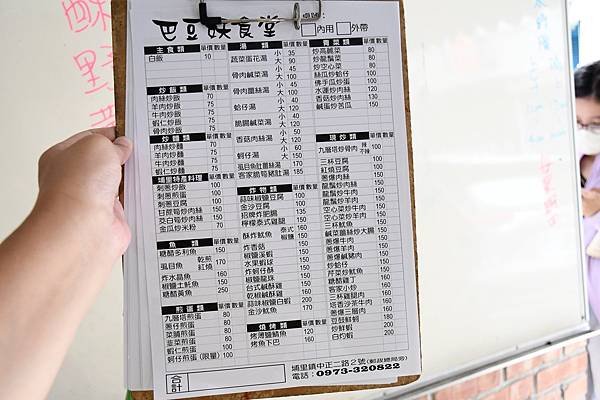 巴豆妖食堂
桌號:
內用 外帶
主食類 單價 數量
白飯 10
炒飯類 單價 數量
肉絲炒飯 70
羊肉炒飯 75
牛肉炒飯 75
蝦仁炒飯 75
骨肉炒飯 75
炒麵類 單價 數量
肉絲炒麵 70
羊肉炒麵 75
牛肉炒麵 75
蝦仁炒麵 75
埔里特產料理 單價 數量
刺蔥炒飯 100
刺蔥煎蛋 100
刺蔥豆腐 150
甘蔗筍炒肉絲 150
茭白筍炒肉絲 150
金瓜炒米粉 70
魚類 單價 數量
糖醋多利魚 150
虱目魚 乾煎 150
紅燒 170
炸水晶魚 160
椒鹽土魠魚 150
糖醋黃魚 250
煎蛋類 單價 數量
九層塔煎蛋 80
蔥仔煎蛋 80
菜脯煎蛋 80
韭菜煎蛋 80
蝦仁煎蛋 100
蚵仔煎蛋(限量) 100
合計
湯類 單價 數量
蔬菜蛋花湯 小 35
大 90
骨肉鹹菜湯 小 45
大 100
骨肉薑絲湯 小 40
大 100
蛤仔湯 小 40
大 120
脆腸鹹菜湯 小 50
大 120
香菇肉絲湯 小 50
大 120
蚵仔湯 小 60
大 150
虱目魚肚薑絲湯 150
客家脆筍豬肚湯 185
炸物類 單價 數量
蒜味椒鹽豆腐 100
金沙豆腐 100
招牌炸肥腸 135
檸檬泰式雞腿 150
酥炸魷魚 泰式 160
椒鹽 150
炸香菇 150
椒鹽溪蝦 150
水果蝦球 150
炸蚵仔酥 150
椒鹽龍珠 150
台式鹹酥雞 150
乾椒鹹酥雞 150
蒜味椒鹽白蝦 200
金沙魷魚 170
燒烤類 單價 數量
烤薄鹽鯖魚 120
烤魚下巴 160
青菜類 單價 數量
炒高麗菜 80
炒龍鬚菜 80
炒空心菜 80
絲瓜炒蛤仔 100
佛手瓜炒蛋 100
水蓮炒肉絲 120
香菇炒肉絲 130
鹹蛋炒苦瓜 150
現炒類 單價 數量
九層塔炒骨肉 辣 不辣 170
三杯豆腐 100
紅燒豆腐 100
蔥爆肉絲 150
龍鬚炒肉絲 150
龍鬚炒牛肉 150
龍鬚炒羊肉 150
空心菜炒牛肉 150
空心菜炒羊肉 150
三杯魷魚 150
鹹菜薑絲炒大腸 150
蔥爆牛肉 150
蔥爆羊肉 150
蔥爆鹹豬肉 150
炒蛤仔 150
芹菜炒魷魚 150
糖醋雞丁 150
客家小炒 160
三杯雞腿肉 160
塔香沙茶牛肉 160
蔥爆三層肉 160
豆鼓鮮蚵 180
炒鮮蝦 200
白灼蝦 200
埔里鎮中正二路2號(郵政總局旁)
電話:0973-320822